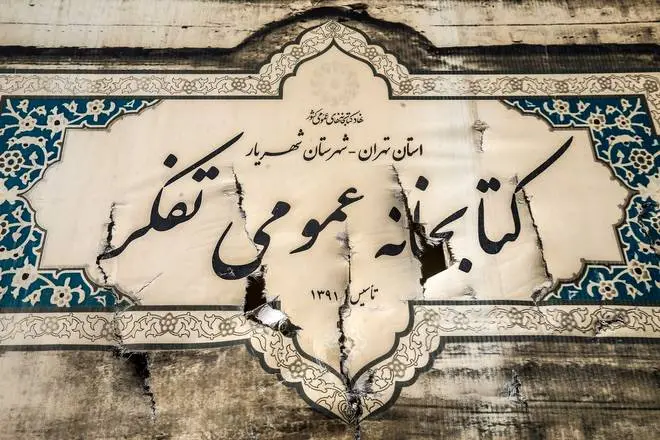 نهاد کتابخانه‌های عمومی کشور
استان تهران - شهرستان شهریار
کتابخانه عمومی تفکر
تأسیس ۱۳۹۱